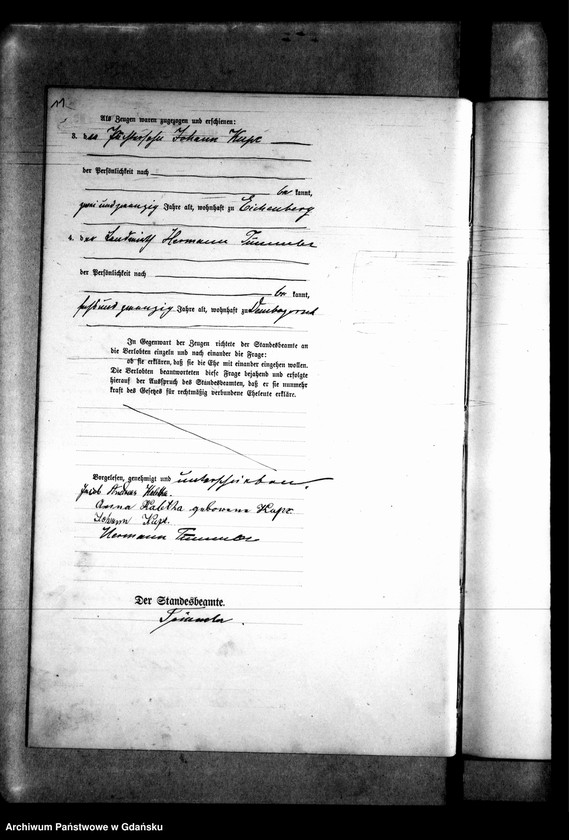 11
Als Zeugen waren zugezogen und erschienen:
3. der Johann Kupc
der Persönlichkeit nach
be kannt,
zwei und zwanzig Jahre alt, wohnhaft zu Eichenberg
4. der Landwirth Hermann Tümmler
der Persönlichkeit nach
be kannt,
sechs und zwanzig Jahre alt, wohnhaft zu
In Gegenwart der Zeugen richtete der Standesbeamte an
die Verlobten einzeln und nach einander die Frage:
ob sie erklären, daß sie die Ehe mit einander eingehen wollen.
Die Verlobten beantworteten diese Frage bejahend und erfolgte
hierauf der Ausspruch des Standesbeamten, daß er sie nunmehr
kraft des Gesetzes für rechtmäßig verbundene Eheleute erkläre.
Vorgelesen, genehmigt und unterschrieben.
Jacob Andreas Kalitha.
Anna Kalitha geborene Kupc
Johann Kupc.
Hermann Tümmler
Der Standesbeamte.
Tümmler.
Archiwum Państwowe w Gdańsku